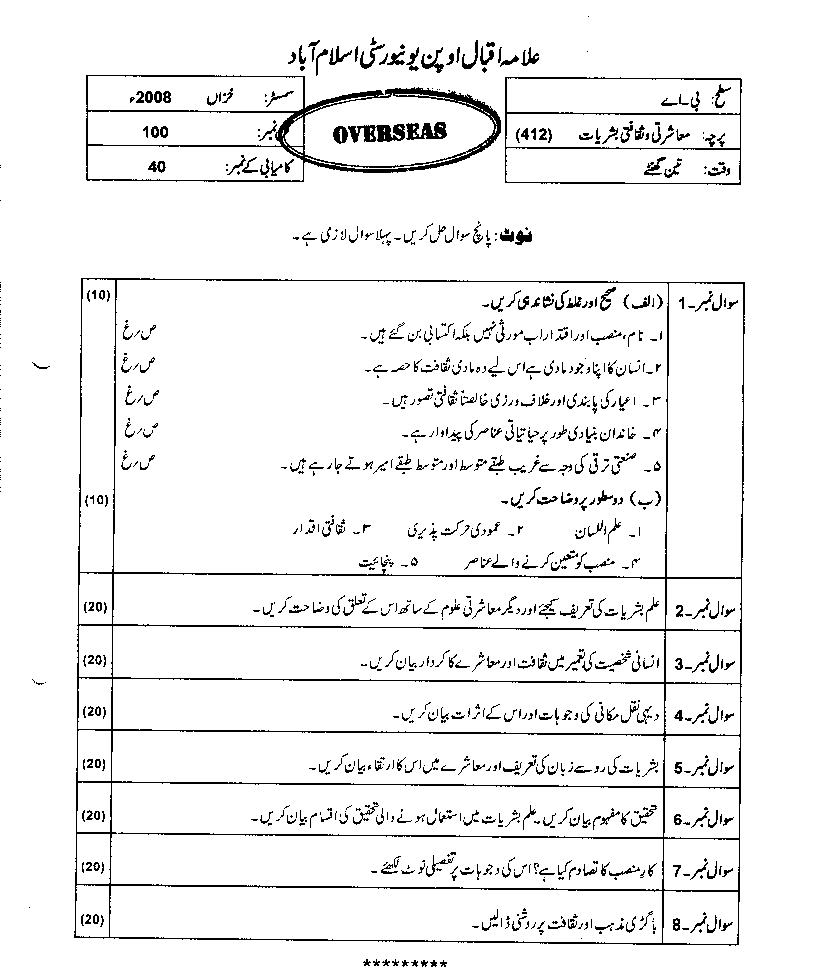 علامہ اقبال اوپن یونیورسٹی اسلام آباد
سطح: بی۔اے
سمسٹر: خزاں 2008ء
پرچہ: معاشرتی و ثقافتی بشریات (412)
OVERSEAS
کل نمبر: 100
وقت: تین گھنٹے
کامیابی کے نمبر: 40
نوٹ: پانچ سوال حل کریں۔ پہلا سوال لازمی ہے۔
سوال نمبر۔1 (الف) صحیح اور غلط کی نشاندہی کریں۔ (10)
۱۔ نام، منصب اور اقتدار اب موروثی نہیں بلکہ اکتسابی بن گئے ہیں۔ ص/غ
۲۔ انسان کا اپنا وجود مادی ہے اس لیے وہ مادی ثقافت کا حصہ ہے۔ ص/غ
۳۔ اعیار کی پابندی اور خلاف ورزی خالصتاً ثقافتی تصور ہیں۔ ص/غ
۴۔ خاندان بنیادی طور پر حیاتیاتی عناصر کی پیداوار ہے۔ ص/غ
۵۔ صنعتی ترقی کی وجہ سے غریب طبقے متوسط اور متوسط طبقے امیر ہوتے جا رہے ہیں۔ ص/غ
(ب) دو سطور پر وضاحت کریں۔ (10)
۱۔ علم اللسان ۲۔ عمودی حرکت پذیری ۳۔ ثقافتی اقدار
۴۔ منصب کو متعین کرنے والے عناصر ۵۔ پنچائیت
سوال نمبر۔2 علم بشریات کی تعریف کیجئے اور دیگر معاشرتی علوم کے ساتھ اس کے تعلق کی وضاحت کریں۔ (20)
سوال نمبر۔3 انسانی شخصیت کی تعمیر میں ثقافت اور معاشرے کا کردار بیان کریں۔ (20)
سوال نمبر۔4 دیہی نقل مکانی کی وجوہات اور اس کے اثرات بیان کریں۔ (20)
سوال نمبر۔5 بشریات کی رو سے زبان کی تعریف اور معاشرے میں اس کا ارتقاء بیان کریں۔ (20)
سوال نمبر۔6 تحقیق کا مفہوم بیان کریں۔ علم بشریات میں استعمال ہونے والی تحقیق کی اقسام بیان کریں۔ (20)
سوال نمبر۔7 کار منصب کا تصادم کیا ہے؟ اس کی وجوہات پر تفصیلی نوٹ لکھئے۔ (20)
سوال نمبر۔8 باگڑی مذہب اور ثقافت پر روشنی ڈالیں۔ (20)
*********